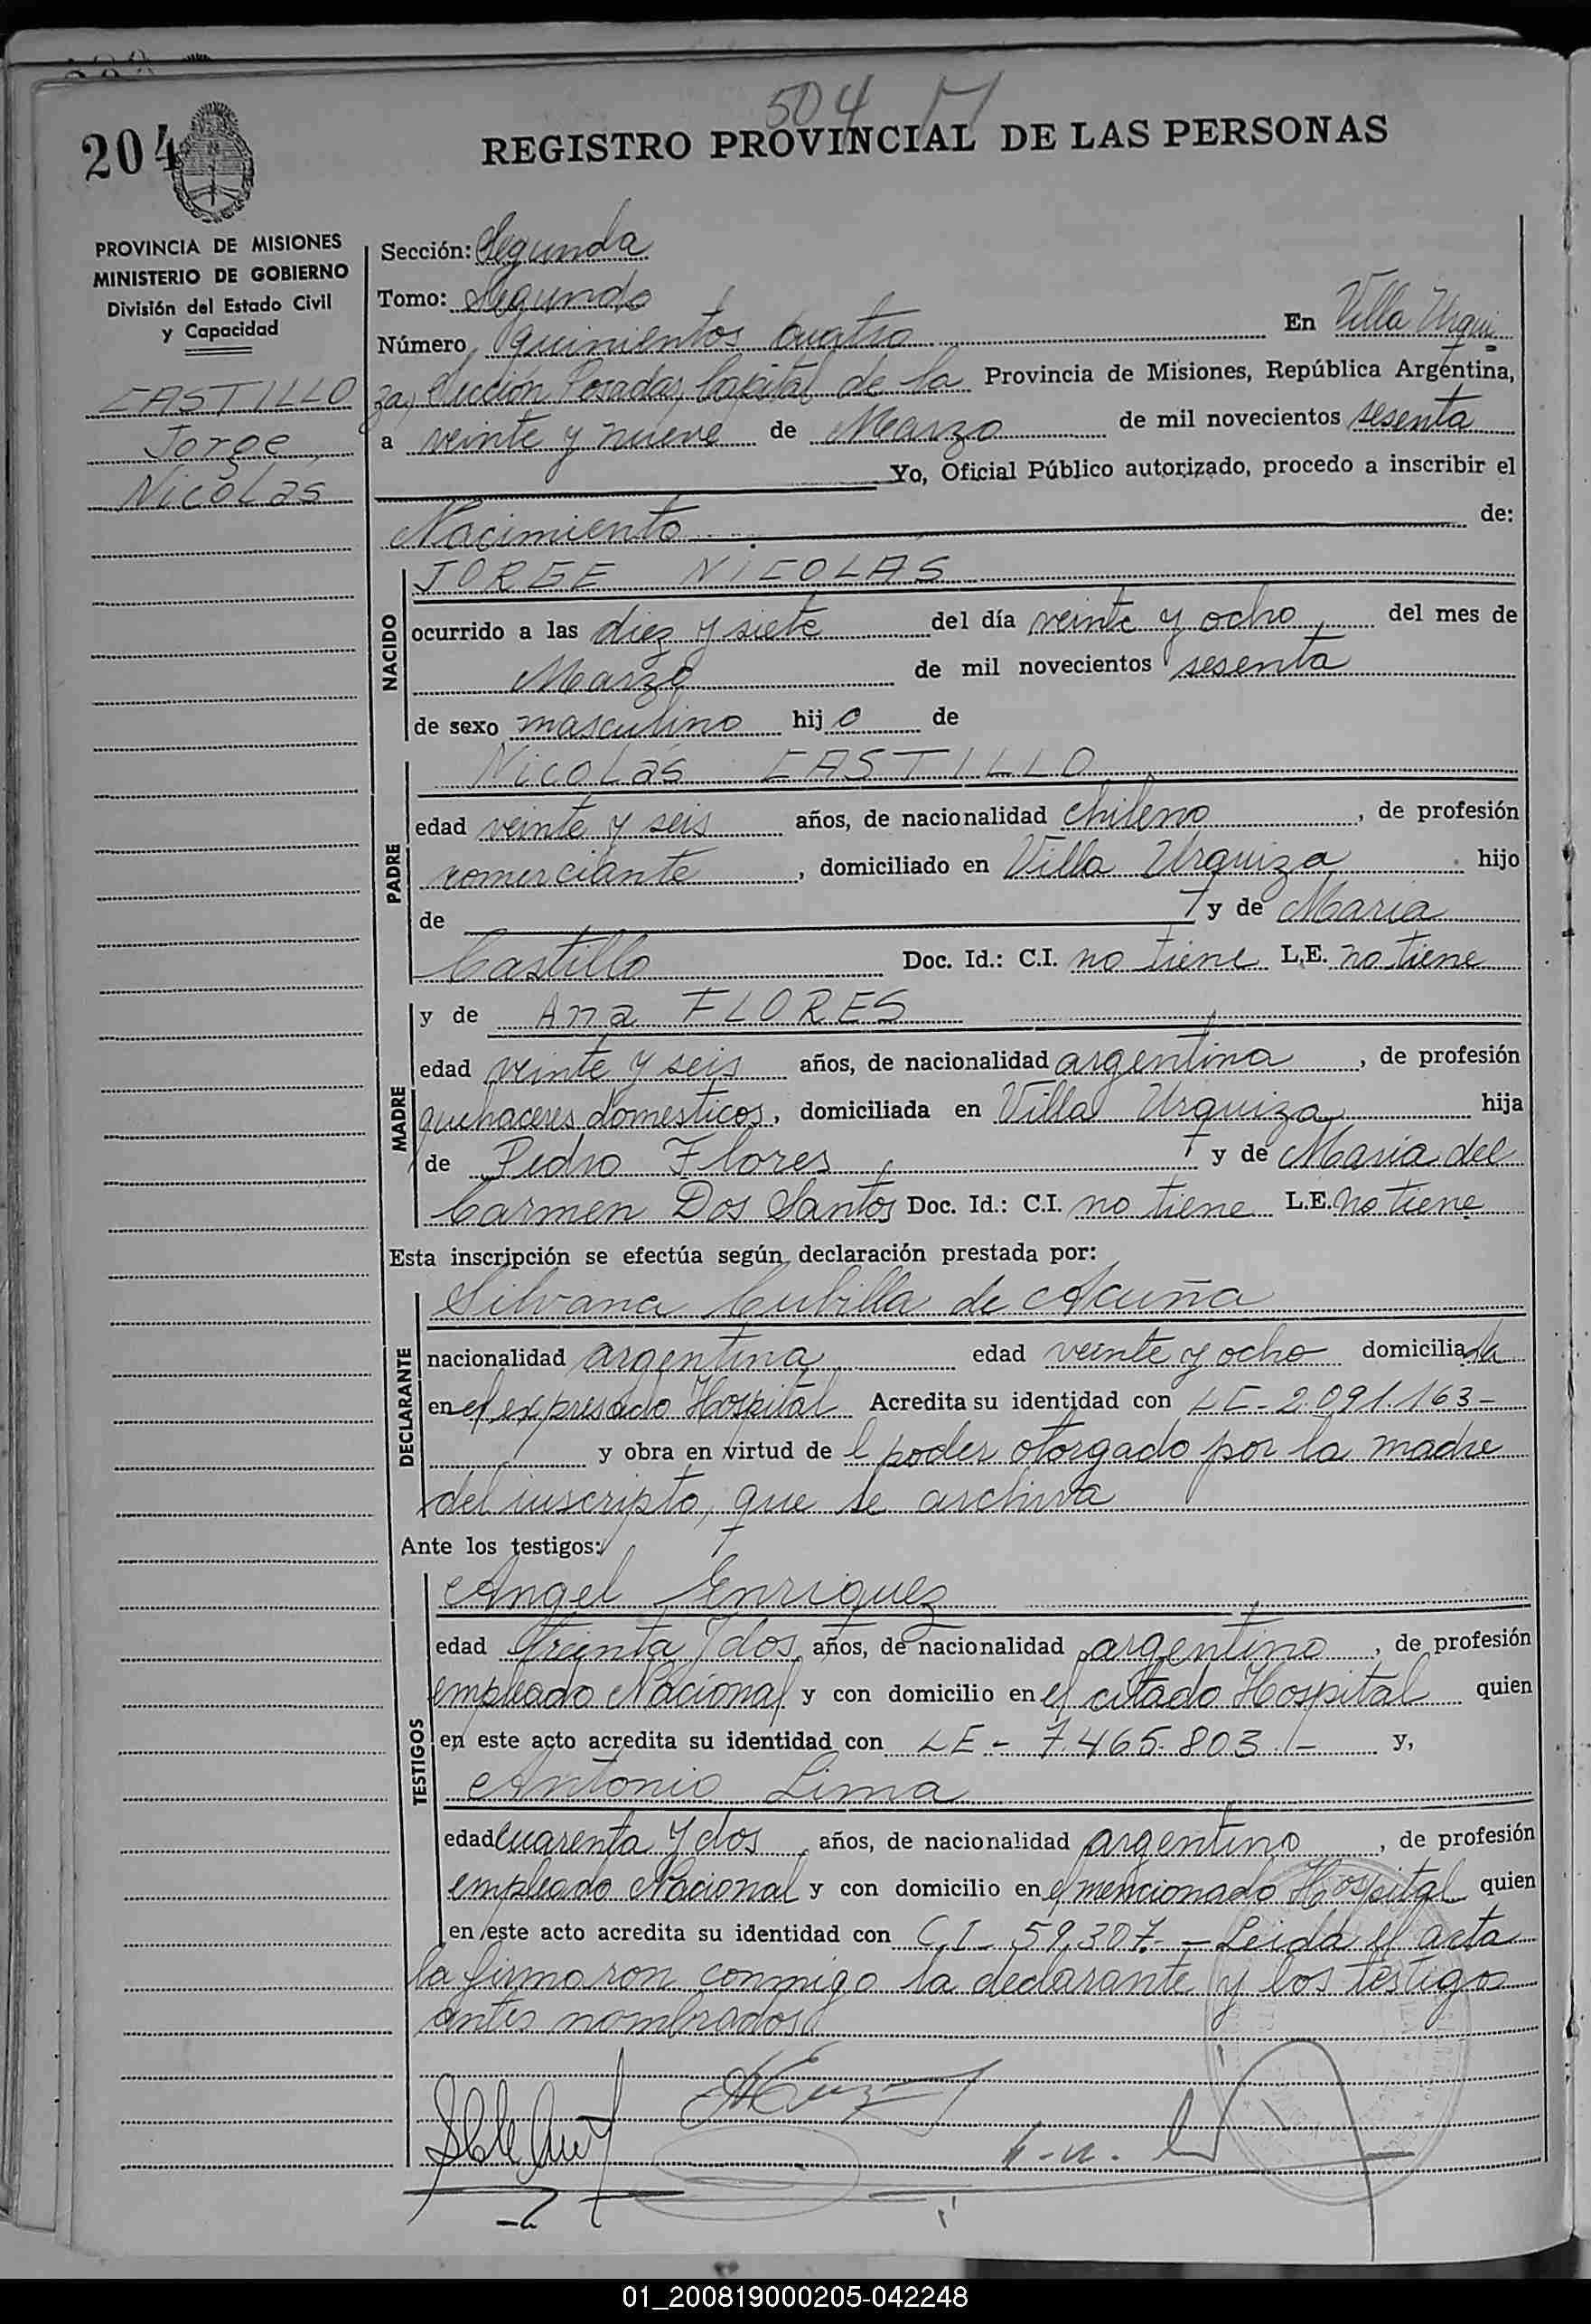 504
204
REGISTRO PROVINCIAL DE LAS PERSONAS
PROVINCIA DE MISIONES
MINISTERIO DE GOBIERNO
División del Estado Civil
y Capacidad
CASTILLO
Jorge
Nicolás
Sección: Segunda
Tomo: Segundo
Número quinientos cuatro En Villa Urqui-
za, Sección Posadas, Capital de la Provincia de Misiones, República Argentina,
a veinte y nueve de Marzo de mil novecientos sesenta
Yo, Oficial Público autorizado, procedo a inscribir el
Nacimiento de:
NACIDO
JORGE NICOLAS
ocurrido a las diez y siete del día veinte y ocho del mes de
Marzo de mil novecientos sesenta
de sexo masculino hijo de
PADRE
Nicolás CASTILLO
edad veinte y seis años, de nacionalidad chileno, de profesión
comerciante, domiciliado en Villa Urquiza hijo
de y de María
Castillo Doc. Id.: C.I. no tiene L.E. no tiene
MADRE
y de Ana FLORES
edad veinte y seis años, de nacionalidad argentina, de profesión
quehaceres domesticos, domiciliada en Villa Urquiza hija
de Pedro Flores y de María del
Carmen Dos Santos Doc. Id.: C.I. no tiene L.E. no tiene
Esta inscripción se efectúa según declaración prestada por:
DECLARANTE
Silvana Cubilla de Acuña
nacionalidad argentina edad veinte y ocho domiciliada
en el expresado Hospital Acredita su identidad con LE-2.091.163-
y obra en virtud del poder otorgado por la madre
del inscripto, que se archiva
Ante los testigos:
TESTIGOS
Angel Enriquez
edad treinta y dos años, de nacionalidad argentino, de profesión
empleado Nacional y con domicilio en el citado Hospital quien
en este acto acredita su identidad con LE- 7.465.803.- y,
Antonio Lima
edad cuarenta y dos, años, de nacionalidad argentino, de profesión
empleado Nacional y con domicilio en el mencionado Hospital quien
en este acto acredita su identidad con C.I- 59.307.- - Leida el acta
la firmaron conmigo la declarante y los testigos
antes nombrados
01_200819000205-042248